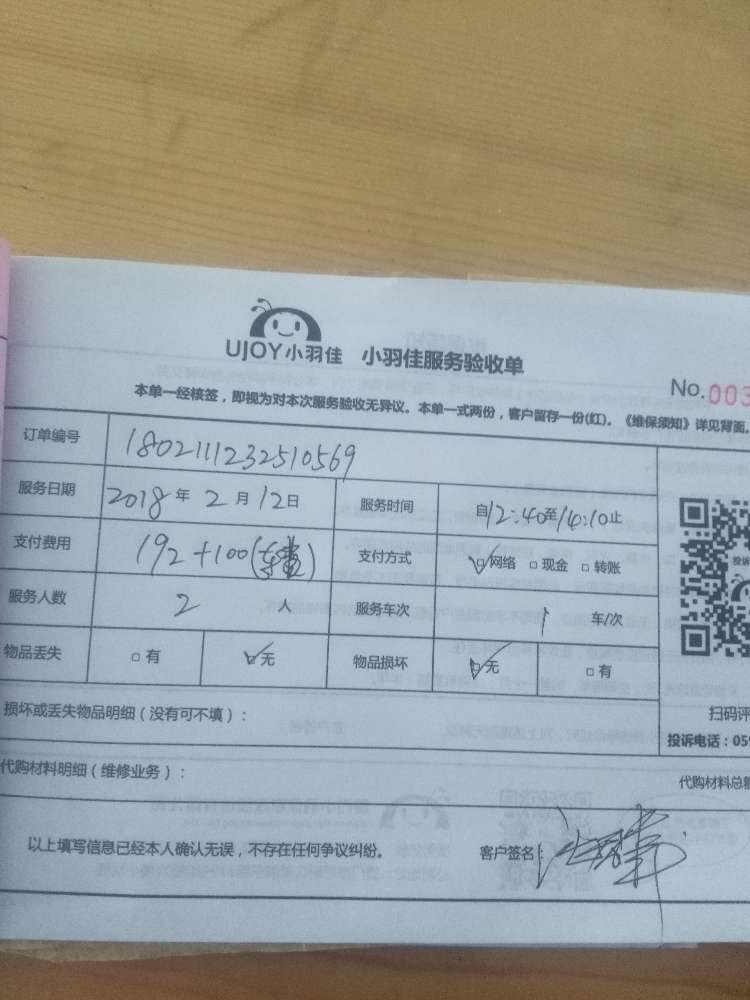 UJOY小羽佳 小羽佳服务验收单
No.003
本单一经核签，即视为对本次服务验收无异议。本单一式两份，客户留存一份(红)。《维保须知》详见背面。
订单编号 1802111232510569
服务日期 2018年2月12日 服务时间 自12:40至14:10止
支付费用 192+100( 费) 支付方式 网络 现金 转账
服务人数 2人 服务车次 1 车/次
物品丢失 有 无 物品损坏 无 有
损坏或丢失物品明细（没有可不填）：
扫码评
投诉电话：059
代购材料明细（维修业务）：
代购材料总额
以上填写信息已经本人确认无误，不存在任何争议纠纷。 客户签名：